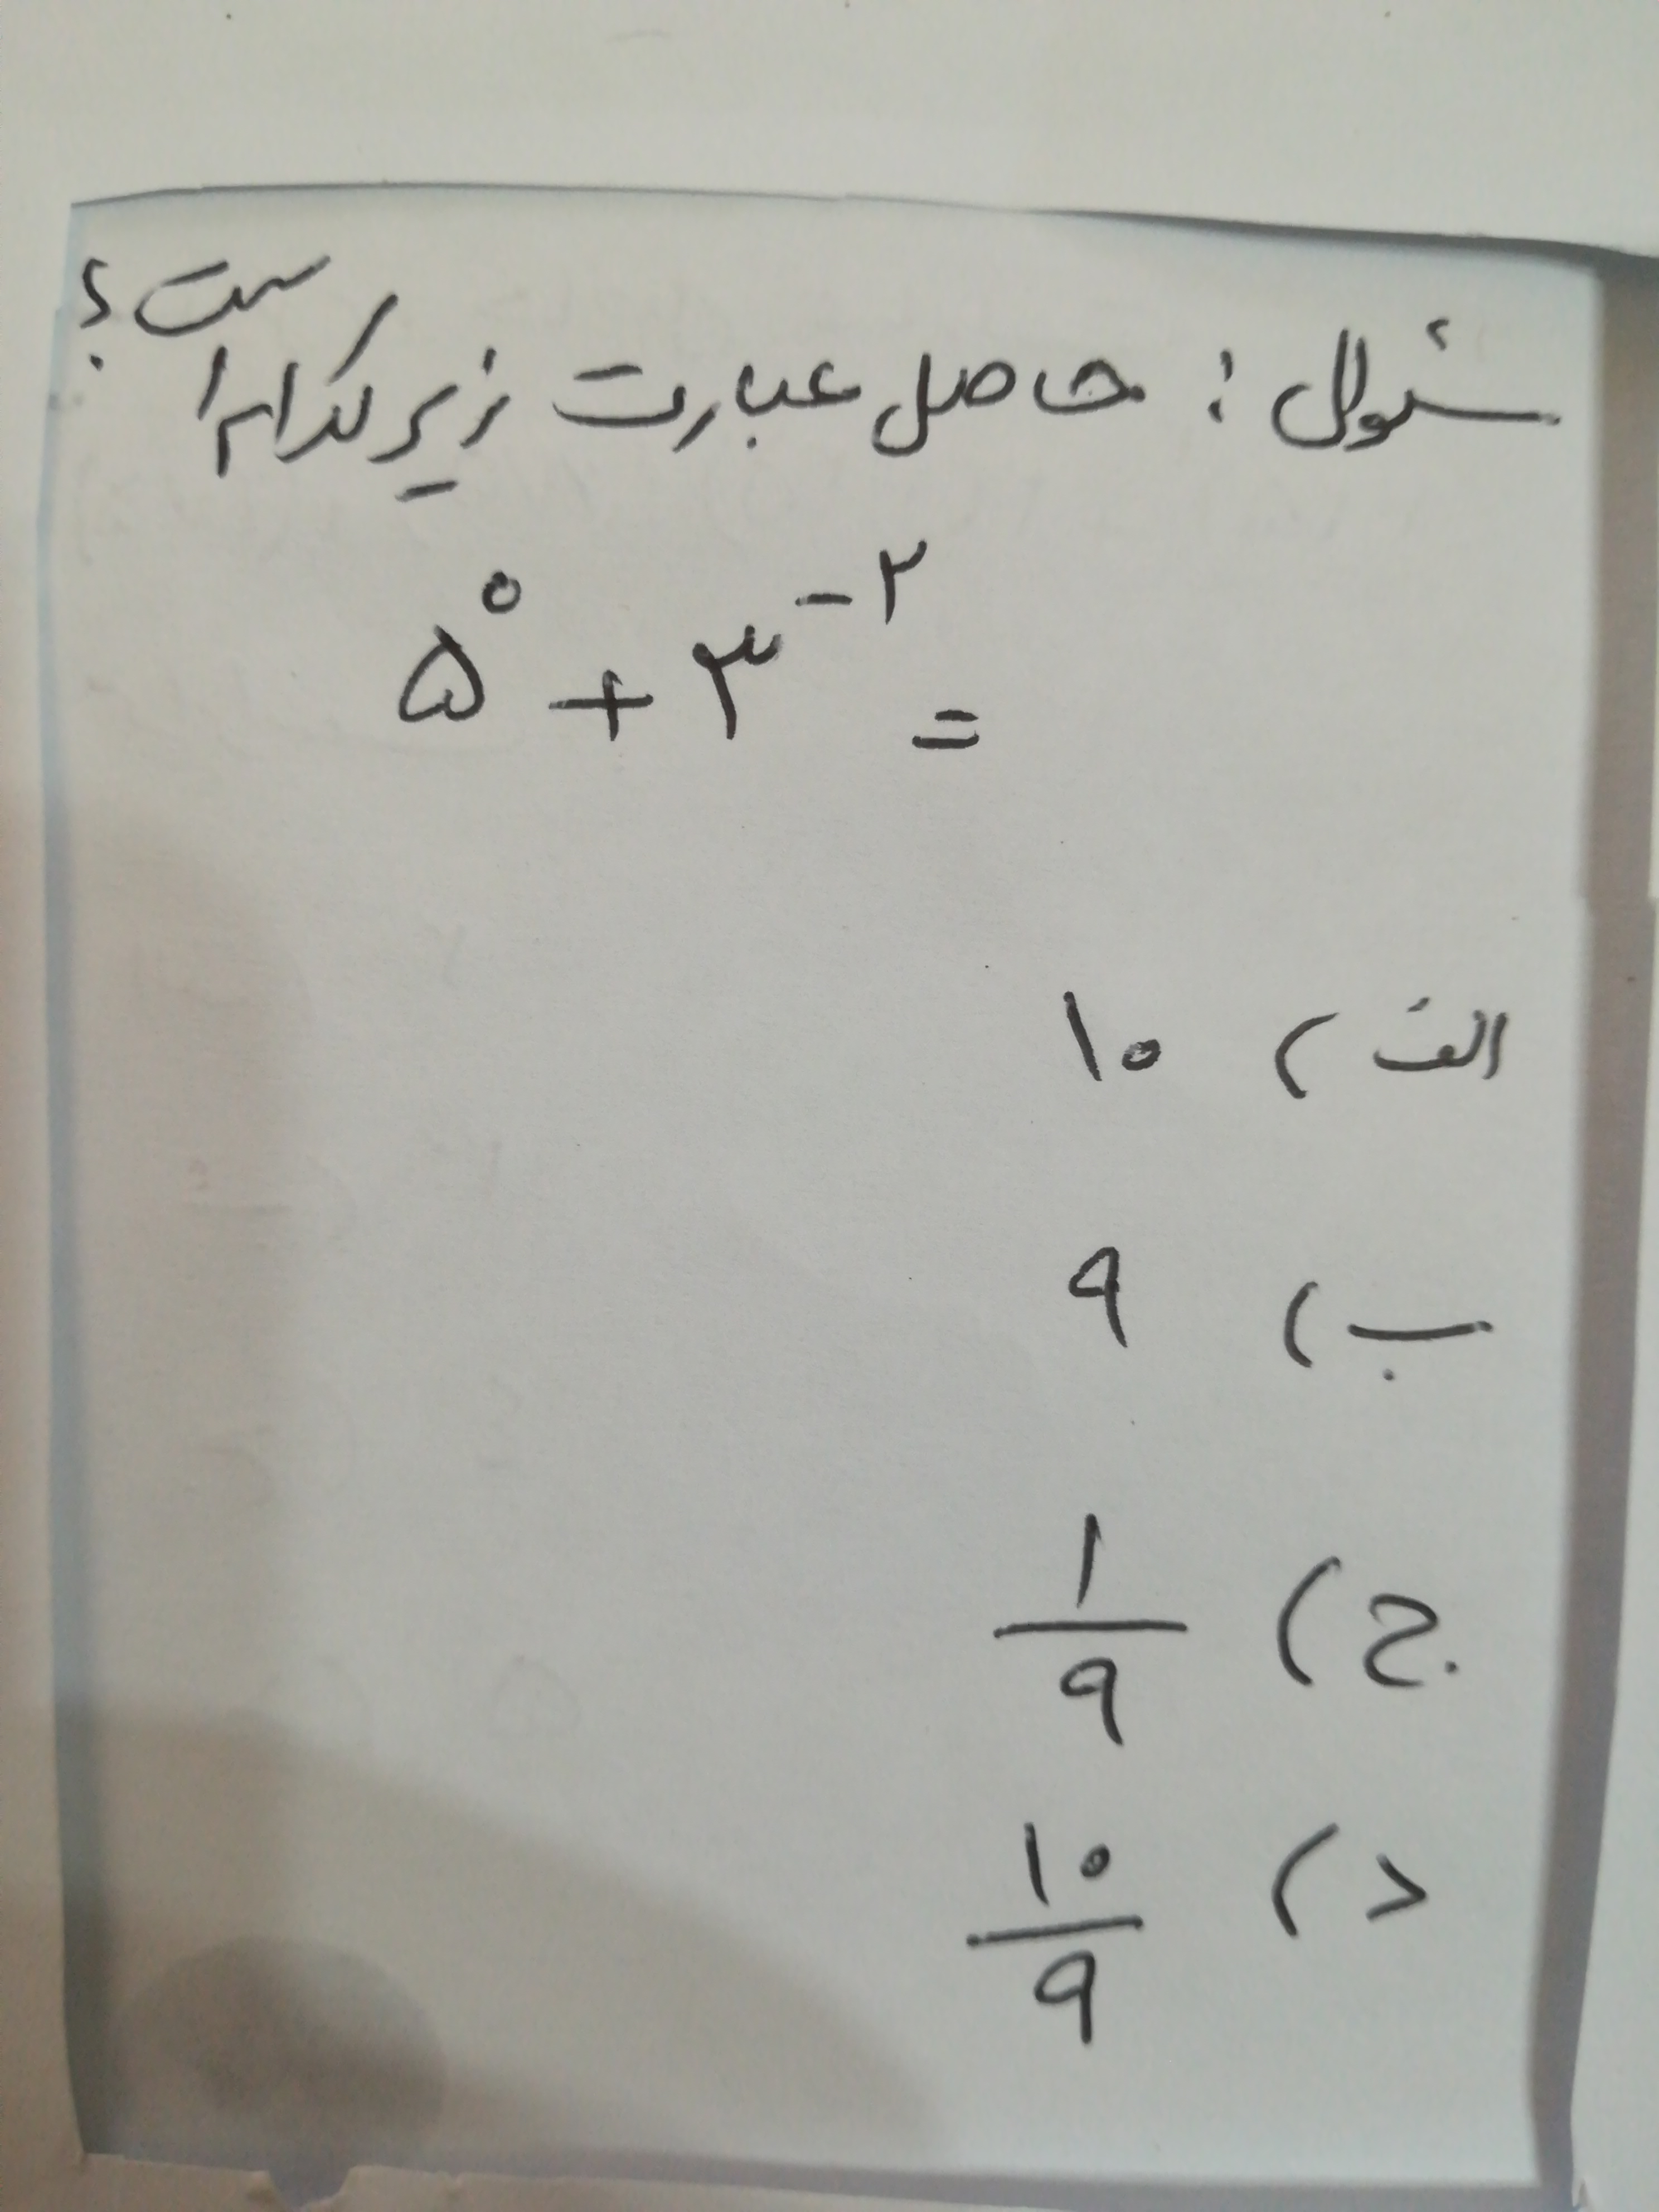 سئوال : حاصل عبارت زیر کدام است ؟
۵^۰ + ۳^-۲ =
الف ) ۱۰
ب ) ۹
ج ) ۱/۹
د ) ۱۰/۹